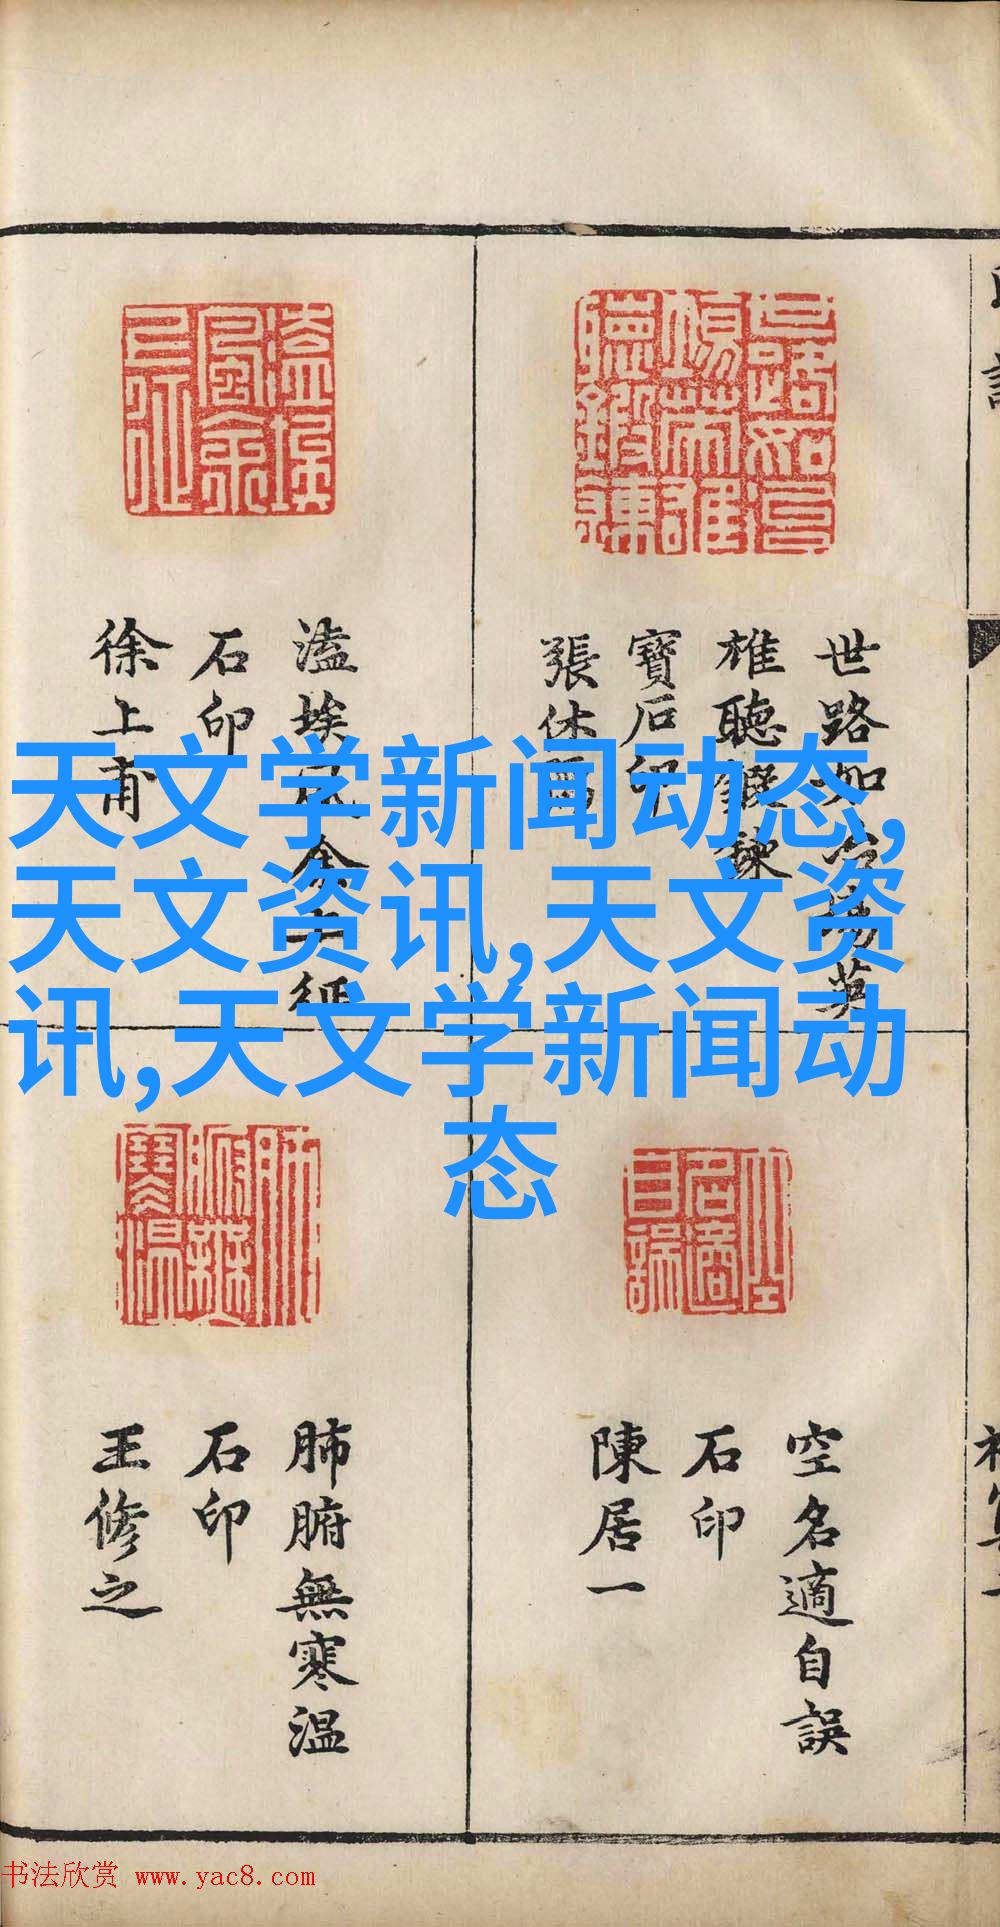 世路如冶場英
雄聽鍛鍊
寶石印
張休
溘埃風余上征
石印
徐上甫
空名適自誤
石印
陳居一
肺腑無寒温
石印
王修之
天文学新闻动态,
天文资讯,天文资
讯,天文学新闻动
态
书法欣赏 www.yac8.com